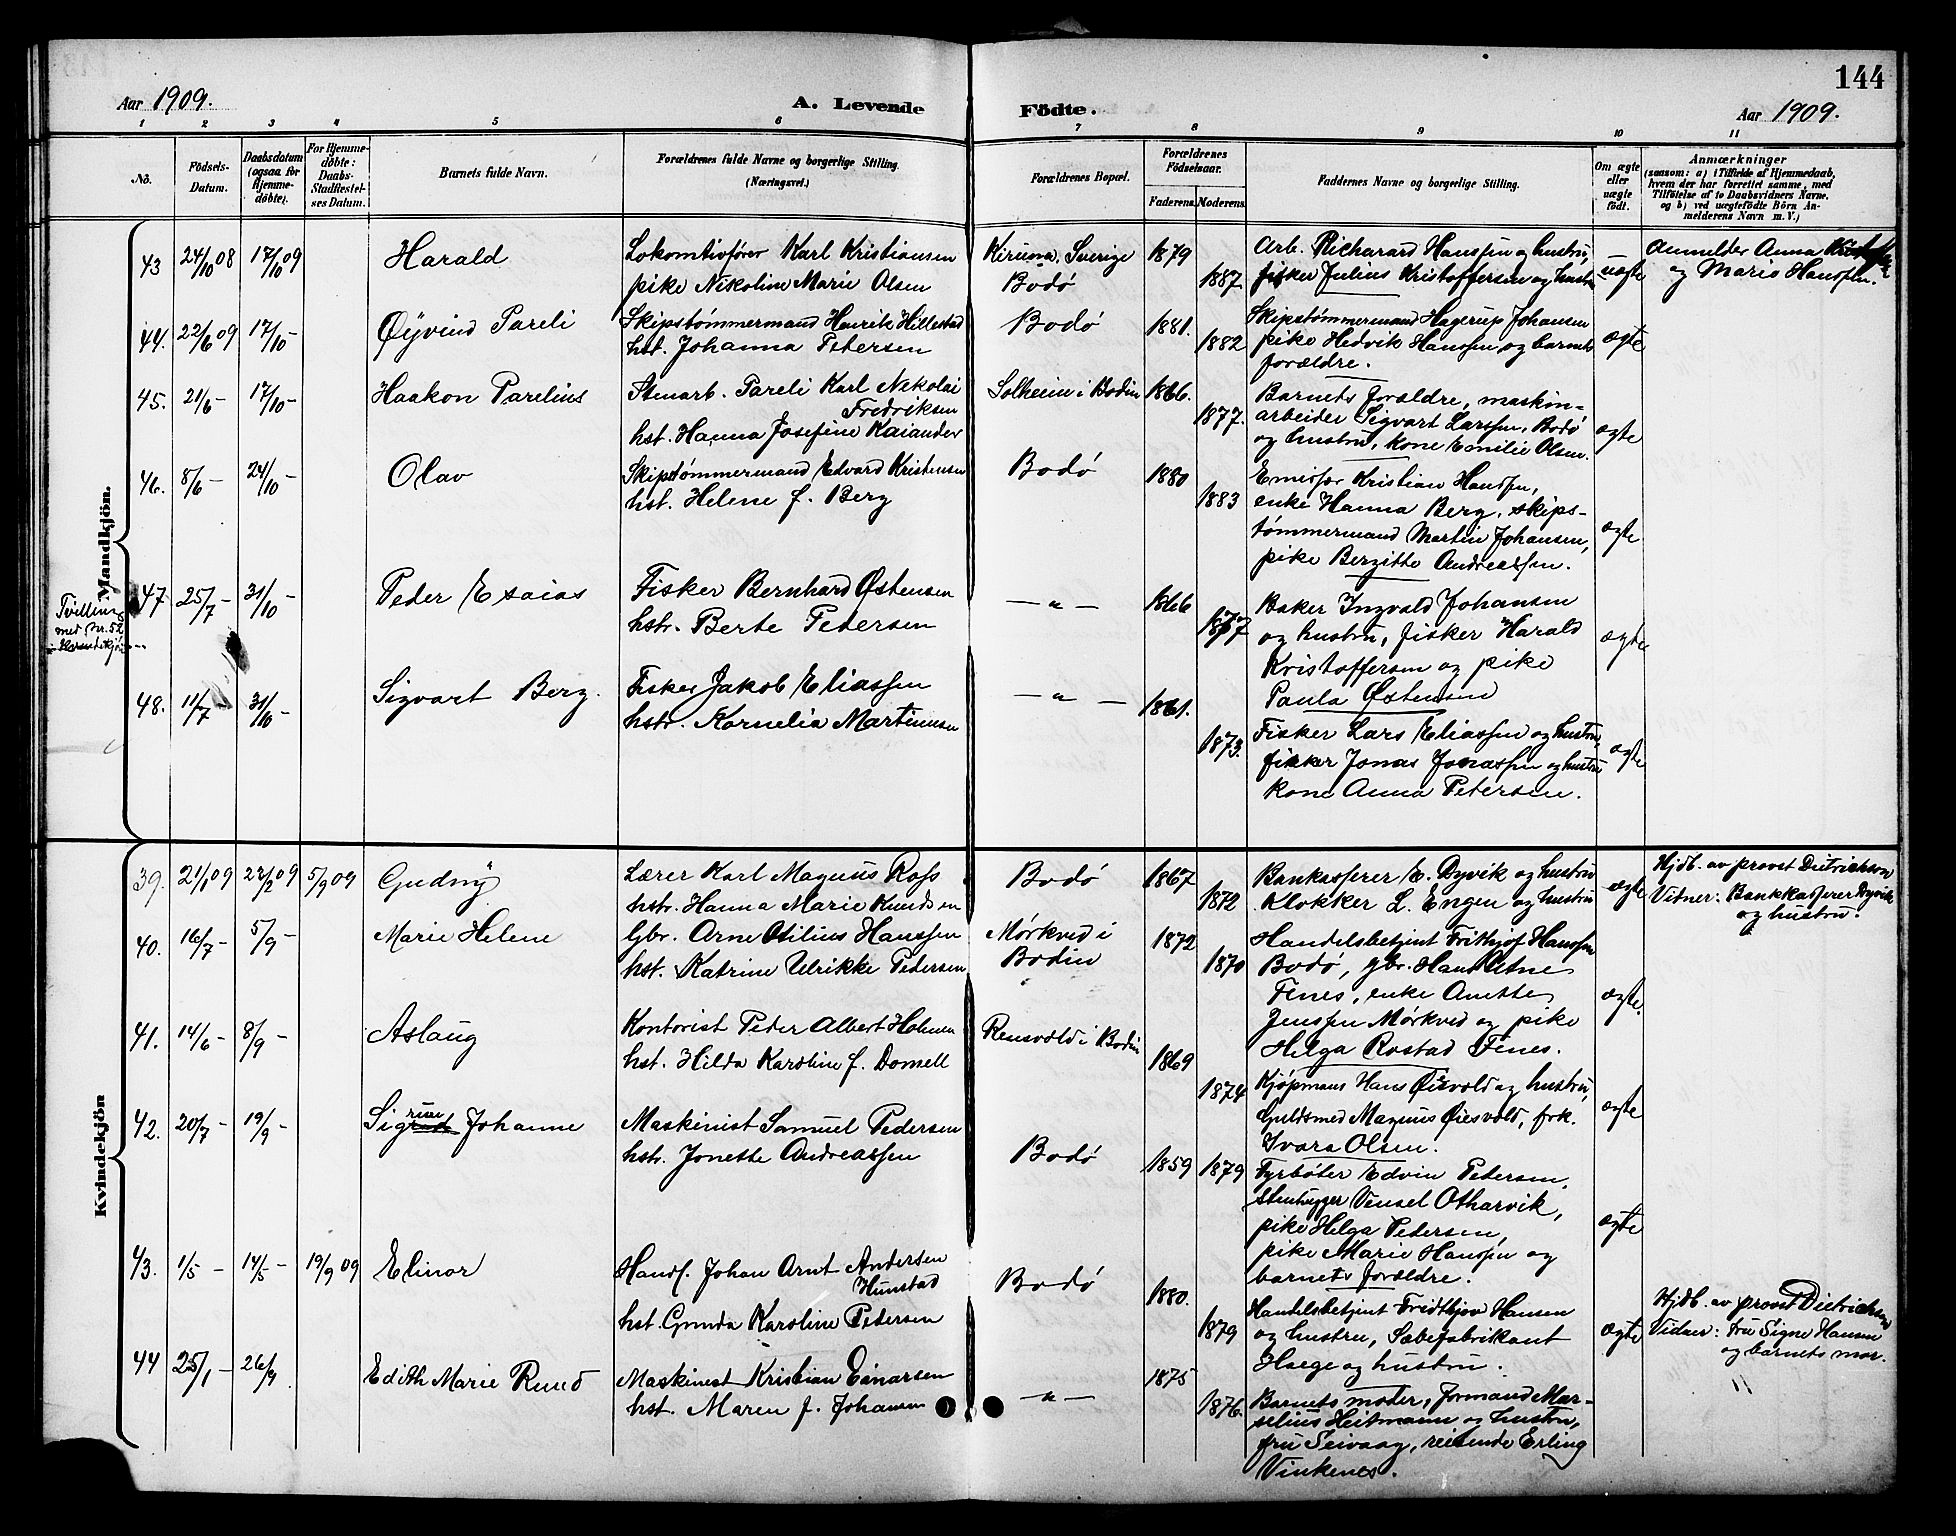 144
Aar 1909. A. Levende Födte. Aar 1909.
1 2 3 4 5 6 7 8 9 10 11
No.
Födsels-
Datum.
Daabsdatum
(ogsaa for
Hjemme-
döbte).
For Hjemme-
döbte:
Daabs-
Stadfæstel-
ses Datum.
Barnets fulde Navn.
Forældrenes fulde Navne og borgerlige Stilling.
(Næringsvei.)
Forældrenes Bopæl.
Forældrenes
Födselsaar.
Faderens. Moderens.
Faddernes Navne og borgerlige Stilling.
Om ægte
eller
uægte
födt.
Anmærkninger
(saasom: a) i Tilfælde af Hjemmedaab,
hvem der har forrettet samme, med
Tilföielse af to Daabsvidners Navne.
og b) ved uægtefödte Börn An-
melderens Navn m. V.)
Mandkjön.
43 24/10 08 17/10 09 Harald
Lokomtivfører Karl Kristiansen
pike Nikoline Marie Olsen
Kiruna, Sverige
Bodø
1879
1887
Arb. Richarard Hanssen og hustru,
fisker Julius Kristoffersen og hustru
uægte
Anmelder Anna
og Marie Hanssen.
44. 22/6 09 17/10 - Øyvind Pareli
Skipstømmermand Henrik Hillestad
hst. Johanna Petersen
Bodø
1881.
1882
Skipstømmermand Hagerup Johansen
pike Hedvik Hanssen og barnets
forældre.
ægte
45. 21/6 - 17/10 - Haakon Parelius
Stenarb. Pareli Karl Nikolai
Fredriksen
hst. Hanna Josefine Kaiander
Solheim i Bodin
1866.
1877.
Barnets forældre, maskin-
arbeider Sigvart Larssen, Bodø
og hustru, kone Emilie Olsen.
ægte
46. 8/6 - 24/10 - Olav
Skipstømmermand Edvard Kristensen
hst. Helene f. Berg
Bodø
1880
1883
Emissær Kristian Hanssen,
enke Hanna Berg, skips-
tømmermand Martin Johansen,
pike Bergitte Andreassen.
ægte
Tvilling
med Nr. 52
i Kvindekjøn
47 25/7 - 31/10 - Peder Esaias
Fisker Bernhard Østensen
hstr. Berte Petersen
— " —
1866
1877
Baker Ingvald Johansen
og hustru, fisker Harald
Kristoffersen og pike
Paula Østensen
ægte
48. 11/7 - 31/10 - Sigvart Berg.
Fisker Jakob Eliassen
hstr. Kornelia Martinussen
— " —
1861.
1873.
Fisker Lars Eliassen og hustru,
fisker Jonas Jonassen og hustru
kone Anna Petersen.
ægte
Kvindekjön
39. 21/1 09 22/2 09 5/9 09 Gudny
Lærer Karl Magnus Ross
hstr. Hanna Marie Knudsen
Bodø
1867
1872
Bankasserer E. Dyvik og hustru
Klokker L. Engen og hustru
ægte
Hjdb. av provst Dietrichson
Vitner: Bankkasserer Dyvik
og hustru.
40. 16/7 - 5/9 - Marie Helene
Gbr. Arne Otilius Hanssen
hst. Katrine Ulrikke Pedersen
Mørkved i
Bodin
1872
1870
Handelsbetjent Frithjof Hanssen
Bodø, gbr. Hans Arne
Fenes, enke Anette
Jenssen Mørkved og pike
Helga Rostad Fenes.
ægte.
41. 14/6 - 8/9 - Aslaug
Kontorist Peder Albert Holmen
hst. Hilda Karoline f. Domell
Rensvold i Bodin
1869
1874
Kjøpmans Hans Øiesvold og hustru,
Guldsmed Magnus Øiesvold, frk.
Ivara Olsen.
ægte
42. 20/7 - 19/9 - Sigrun Johanne
Maskinist Samuel Pedersen
hstr. Jonette Andreassen
Bodø
1859
1879
Fyrbøter Edvin Petersen,
stenhugger Vensel Otharvik,
pike Helga Petersen,
pike Marie Hanssen og
barnets forældre.
ægte
43. 1/5 - 14/5 - 19/9 09 Elinor
Handl. Johan Arnt Andersen
Hunstad
hst. Gunda Karoline Petersen
Bodø
1880.
1879
Handelsbetjent Fridthjov Hansen
og hustru, Sæbefabrikant
Haege og hustru.
ægte
Hjdb. av provst Dietrichson
Vidner: fru Signe Hansen
og barnets mor.
44 25/1 - 26/9 Edith Marie Rund
Maskinist Kristian Einarsen
hst. Maren f. Johansen
— " —
1875
1876.
Barnets moder, formand Mar-
selius Heitmann og hustru,
fru Seivaag, reisende Erling
Vinkenes.
"